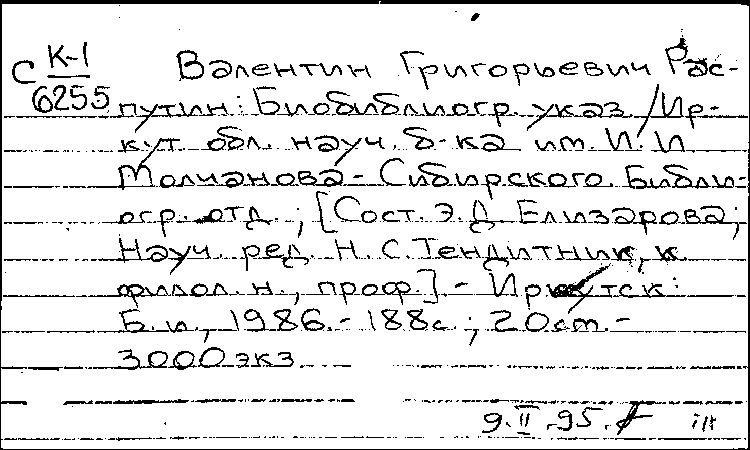 С К-1
6255
Валентин Григорьевич Рас-
путин: Биобиблиогр. указ / Ир-
кут. обл. науч. б-ка им. И. И
Молчанова-Сибирского. Библи-
огр. отд.; [Сост. Э. Д. Елизарова;
Науч. ред. Н. С. Тендитник, к.
филол. н., проф.]. - Иркутск:
Б. и., 1986. - 188с.; 20см. -
3000 экз
9. II. 95.